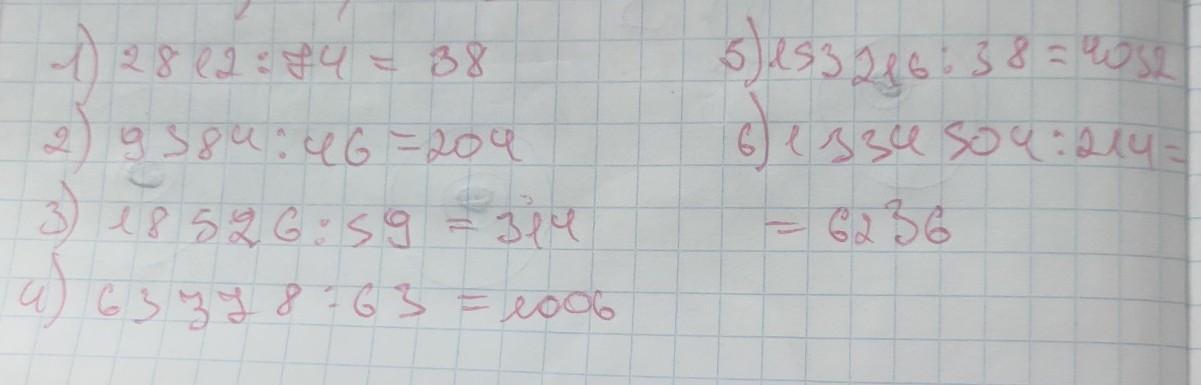 1) 2812 : 74 = 38
2) 9384 : 46 = 204
3) 18526 : 59 = 314
4) 63378 : 63 = 1006
5) 153216 : 38 = 4032
6) 1334504 : 214 =
= 6236